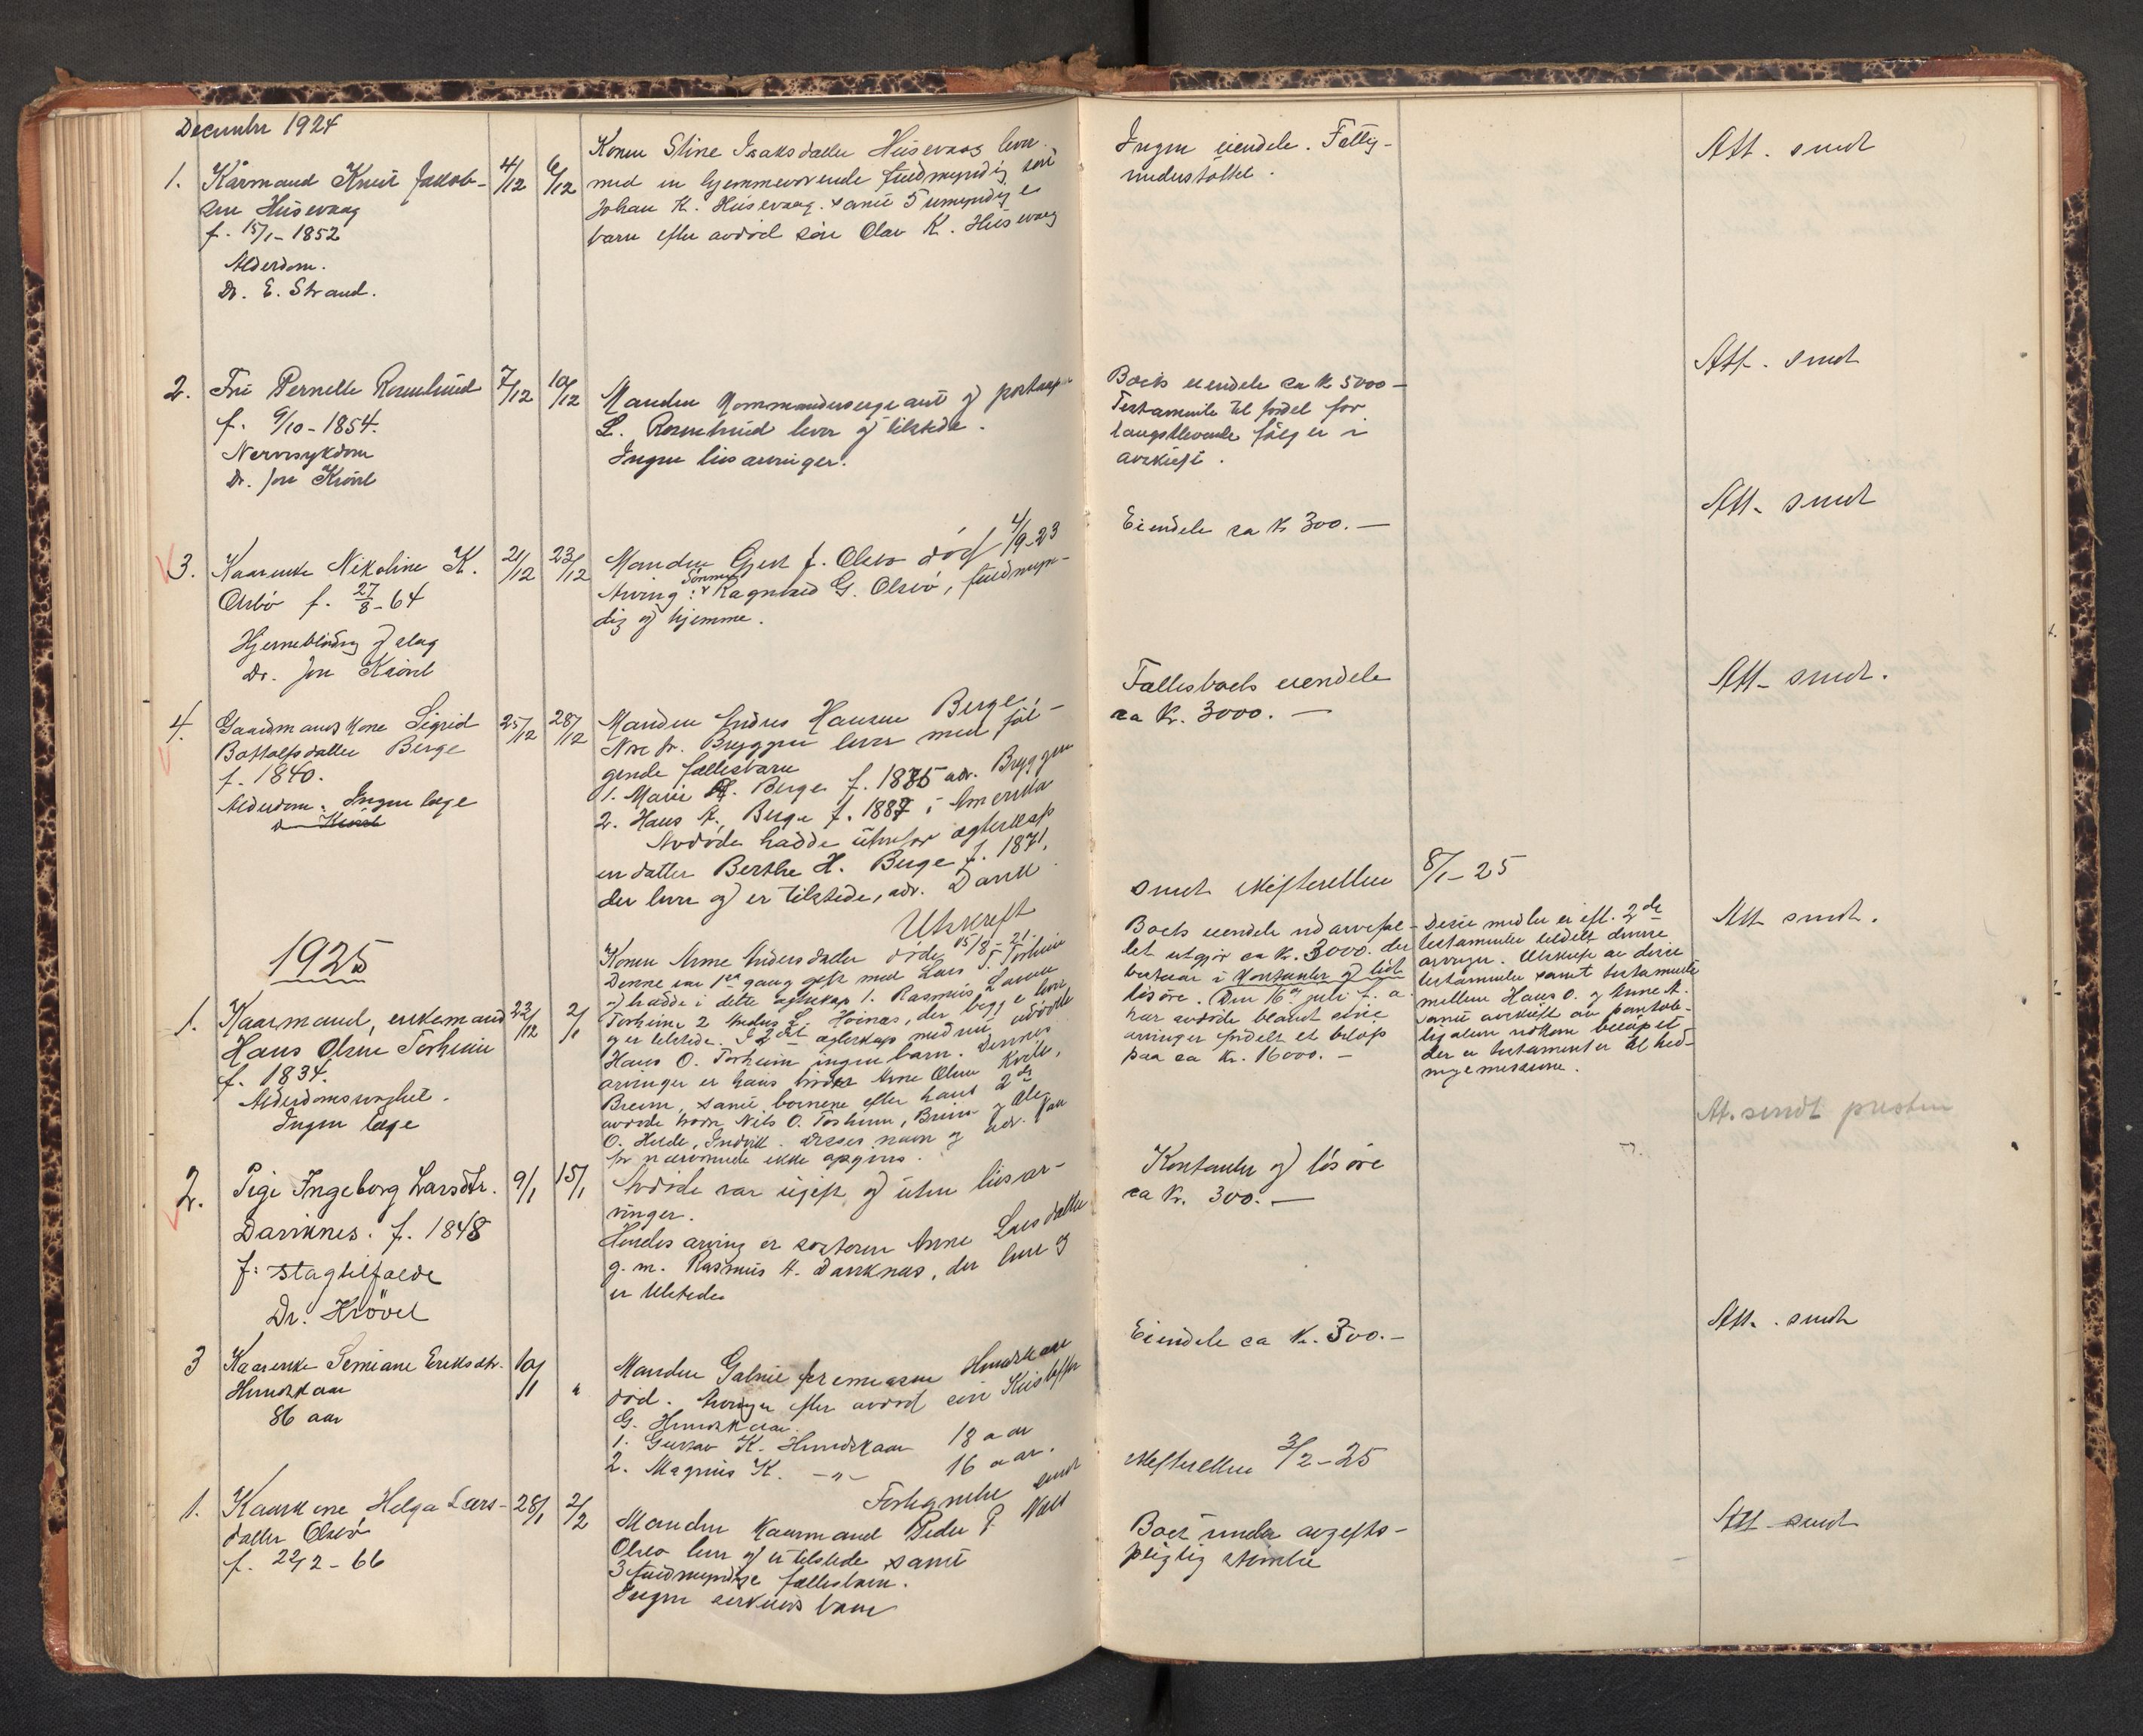 December 1924
1. Kårmand Knut Jakob-
sen Husevaag
f. 15/1-1852
Alderdom.
Dr. E. Strand.
4/12 6/12
Konen Stine Isaksdatter Husevaag lever
med en hjemmeværende fuldmyndig søn
Johan K. Husevaag. samt 5 umyndige
barn efter avdød søn Olav K. Husevaag
Ingen eiendele. Fattig-
understøttet.
Att. sendt
2. Fru Pernelle Rosenlund
f. 9/10-1854.
Nervesykdom
Dr. Jon Krövel
7/12 10/12
Manden Kommandersergeant og
L. Rosenlund lever og tilstede.
Ingen livsarvinger.
Boets eiendele ca kr 5000-
Testamente til fordel for
længstlevende følger i
avskrift.
Att. sendt
3. Kaarenke Nikoline K.
Olsbö f. 27/8-64
Hjerneblödn og slag
Dr. Jon Krövel
21/12 23/12
Manden Gjert J. Olsbö død 4/9-23
Arving: Sønnen Ragnvald G. Olsbö, fuldmyn-
dig og hjemme.
Eiendele ca Kr 300.-
Att. sendt
4. Gaardmandskone Sigrid
Bottolfsdatter Berge
f. 1840.
Alderdom. Ingen læge
Dr Krövel
25/12 28/12
Manden Andres Hansen Berge,
Nore pr. Bryggen lever med føl-
gende fællesbarn
1. Marie A. Berge f. 1885 adr. Bryggen
2. Hans A. Berge f. 1887 i Amerika
Avdøde hadde utenfor ægteskap
en datter Berthe H. Berge f. 1871,
der lever og er tilstede, adr. Davik
Fællesboets eiendele
ca Kr. 3000.-
Att. sendt.
Utskrift
sendt skifteretten 8/1-25
1925
1. Kaarmand, enkemand
Hans Olsen Torheim
f. 1834.
Alderdomssvaghet.
Ingen læge
22/12 2/1
Konen Anne Andersdatter døde 15/8-21.
Denne var 1ste gang gift med Lars T. Torheim
og hadde i dette ægteskap 1. Rasmus Larsen
Torheim 2 Anders L. Hoinæs, der begge lever
og er tilstede. I 2det ægteskap med nu avdøde
Hans O. Torheim ingen barn. Dennes
arvinger er hans broder Arne Olsen Kvile,
Breim, samt børnene efter hans 2de
avdøde brødre Nils O. Torheim, Breim og Ole
O. Hilde, Indvik. Disses navn og adr. kan
for nærværende ikke opgives.
Boets eiendele ved arvefal-
let utgjør ca kr. 3000. der
bestaar i Kontanter og litt
løsøre. Den 16de juli f. a.
har avdøde blandt sine
arvinger fordelt et beløp
paa ca kr. 16000.-
Disse midler er eft. 2de
testamenter tildelt denne
arvinger. Utskrift av disse
testamenter samt testamente
mellem Hans O. og Anne A.
samt avskrift av pantob-
ligation
der er testamenteret til hed-
ningemissionen.
Att sendt.
2. Pige Ingeborg Larsdtr.
Darvknes. f. 1848
f: slagtilfælde
Dr. Krövel
9/1 15/1
Avdøde var ugift og uten livsar-
vinger.
Hendes arving er søsteren Anne Larsdatter
g. m. Rasmus A. Darvknæs, der lever og
er tilstede
Kontanter og løsøre
ca kr. 300.-
At. sendt presten
3 Kaarenke Semiane Eriksdtr.
Hundskaar
86 aar
10/1 "
Manden Gabriel Jeremiasen Hundskaar
død. Arvinger efter avdød søn Kristoffer
G. Hundskaar.
1. Gustav K. Hundskaar 18 aar
2. Magnus K. -"- 16 aar.
Eiendele ca kr. 300.-
Att. sendt
Forhgnelse sendt
skifteretten 3/2-25
1. Kaarkone Helga Lars-
datter Olsbö
f. 22/2-66
28/1 2/2
Manden Kaarmand Peder P.
Olsbö lever og er tilstede samt
3 fuldmyndige fællesbarn.
Ingen særkuldsbarn
Boet under avgifts-
pligtig størrelse
Att sendt